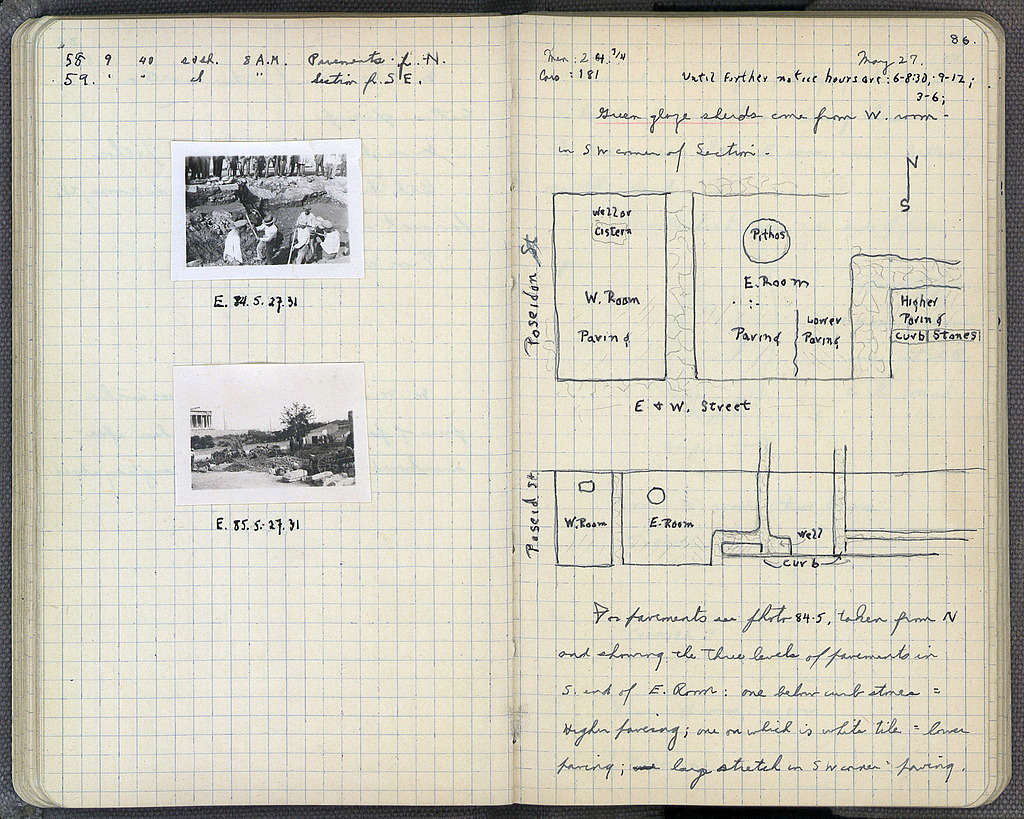 58 9 40 sdsh. 8 A.M. Pavements f. N.
59. " " cl " Section f. S E.
E. 84. 5. 27. 31
E. 85. 5. 27. 31
86.
Men: 24 3/4 May 27.
Cars: 181 Until further notice hours are: 6-8:30, 9-12;
3-6;
Green glaze sherds come from W. room -
in SW corner of Section.
N
S
Well or
Cistern
Pithos
Poseidon St
W. Room
Paving
E. Room
Paving
Lower
Paving
Higher
Paving
Curb Stones
E & W. Street
Poseid St.
W. Room
E. Room
Well
Curb
For pavements see photo 84.5, taken from N
and showing the three levels of pavements in
S. end of E. Room: one below curb stones =
Higher paving; one on which is white tile = lower
paving; large stretch in SW corner = paving.